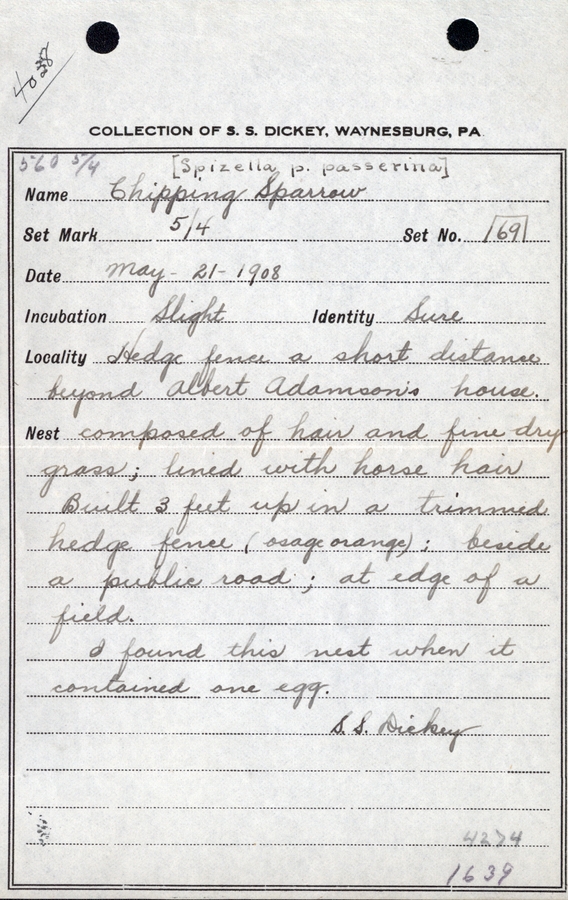 4038
COLLECTION OF S. S. DICKEY, WAYNESBURG, PA.
560 5/4 [Spizella p. passerina]
Name Chipping Sparrow
Set Mark 5/4 Set No. 169
Date May - 21 - 1908
Incubation Slight Identity Sure
Locality Hedge fence a short distance
beyond Albert Adamson's house.
Nest composed of hair and fine dry
grass; lined with horse hair
Built 3 feet up in a trimmed
hedge fence (osage orange); beside
a public road; at edge of a
field.
I found this nest when it
contained one egg.
S. S. Dickey
4274
1639